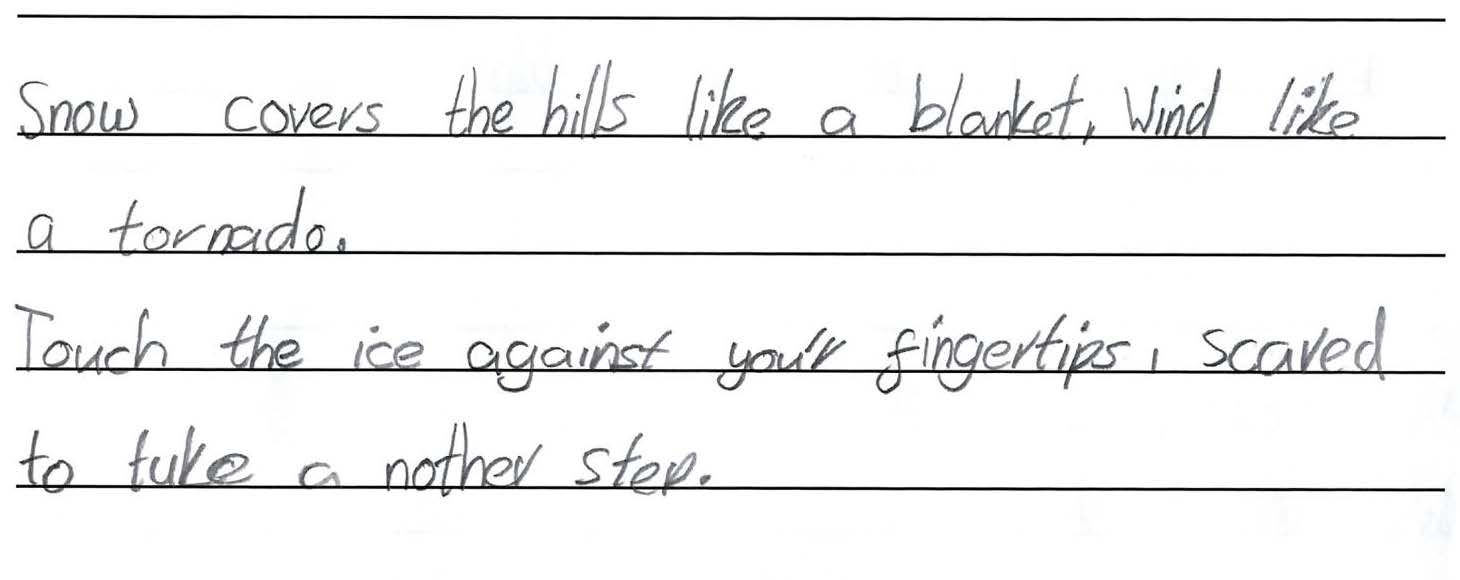 Snow covers the hills like a blanket, Wind like
a tornado.
Touch the ice against you'r fingertips, scared
to take a nother step.